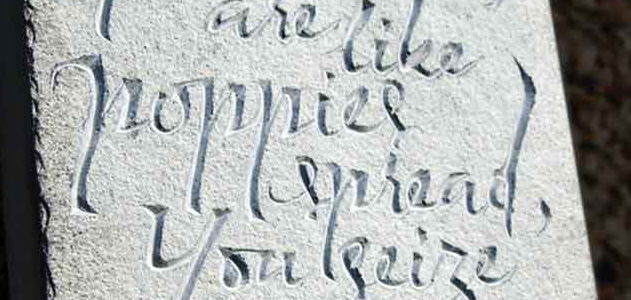 are like
poppies
spread,
You seize